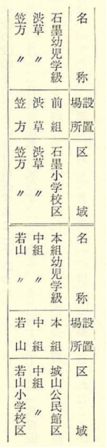 名称 設置場所 区域 名称 設置場所 区域
石墨幼児学級 前組 石墨小学校区 本組幼児学級 本組 城山公民館区
渋草 〃 渋草 渋草 〃 中組 〃 中組 中組 〃
笠方 〃 笠方 笠方 〃 若山 〃 若山 若山小学校区